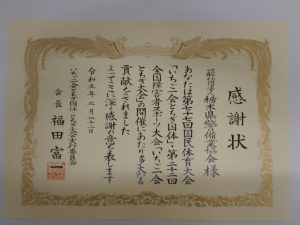 感謝状
一般社団法人栃木県警備業協会 様
あなたは第七十七回国民体育大会
「いちご一会とちぎ国体」・第二十二回
全国障害者スポーツ大会「いちご一会
とちぎ大会」の開催にあたり多大なる
貢献をされました
よってここに深く感謝の意を表します
令和五年三月二十二日
いちご一会とちぎ国体・とちぎ大会実行委員会
会長 福田富一